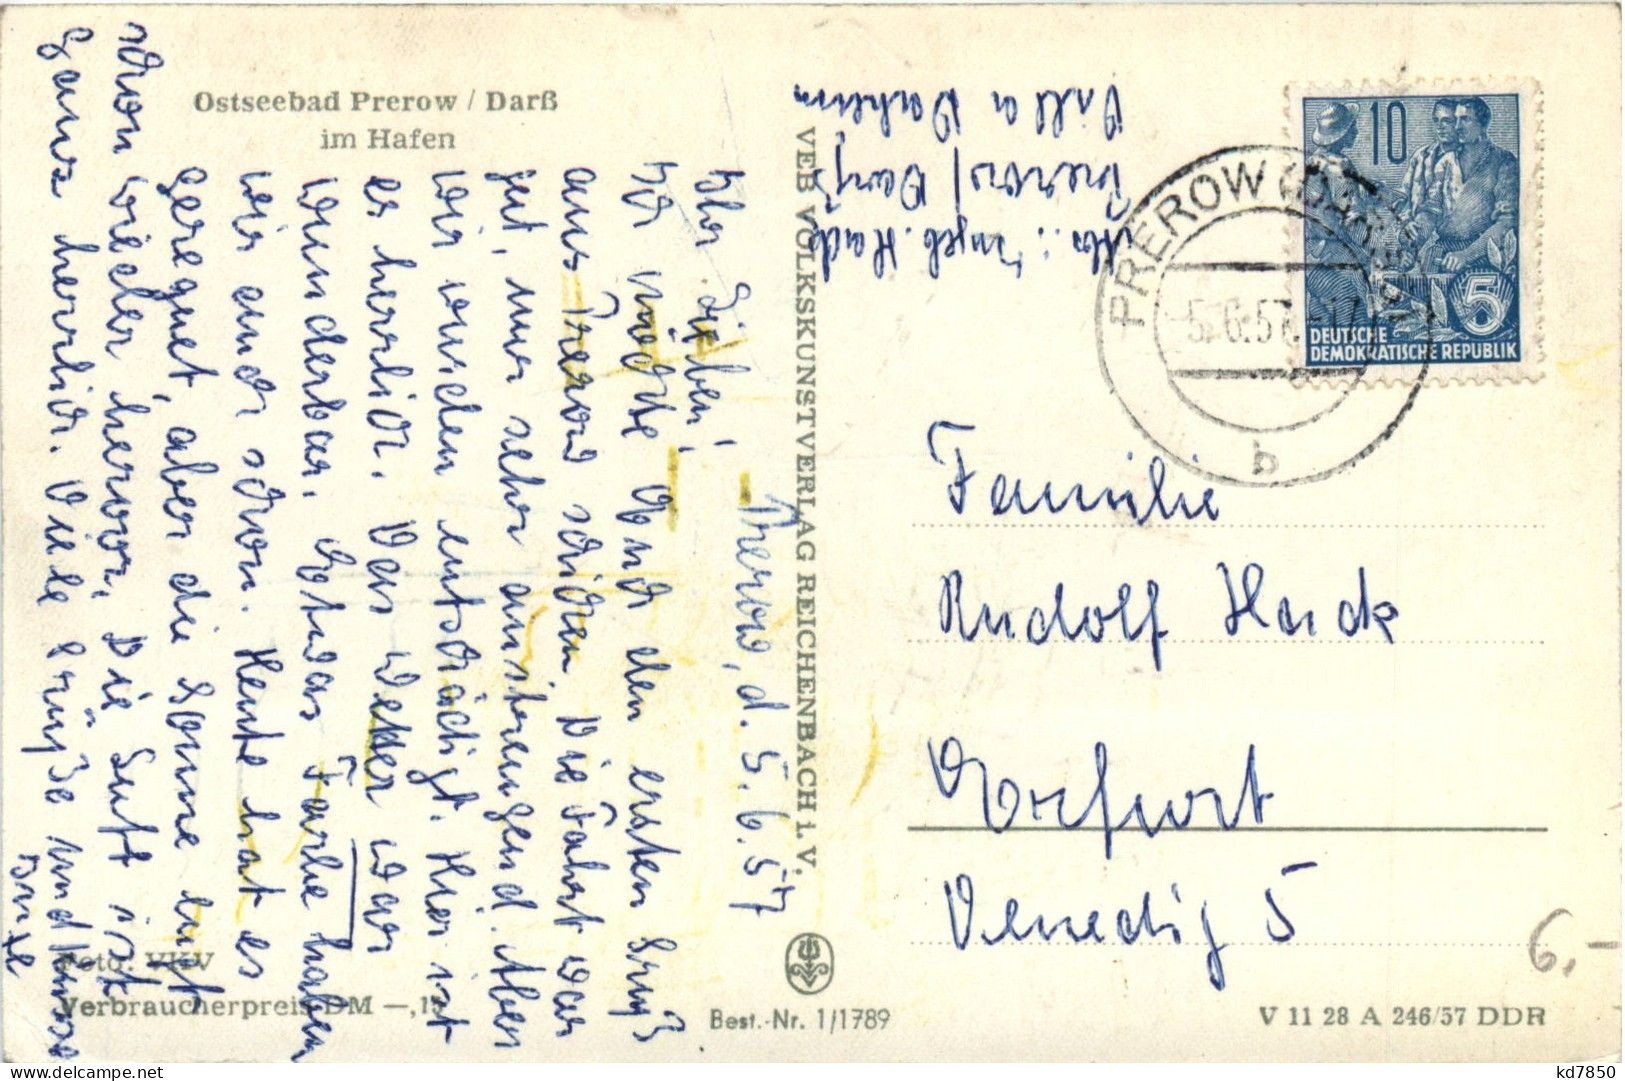 Ostseebad Prerow / Darß
im Hafen
Prerow, d. 5.6.57
Ihr Lieben!
Ich möchte Euch den ersten Gruß
aus Prerow schicken. Die Fahrt war
gut, nur sehr anstrengend. Aber
wir wurden entschädigt. Hier ist
es herrlich. Das Wetter war
wunderbar. Etwas Farbe haben
wir auch schon. Heute hat es
geregnet, aber die Sonne lugt
schon wieder hervor. Die Luft ist
ganz herrlich. Viele Grüße und Küsse
Foto: VKV
Verbraucherpreis DM —,1
VEB VOLKSKUNSTVERLAG REICHENBACH i. V.
Best.-Nr. 1/1789
Abs.: Ingeb. Hack
Prerow/Darß
Villa Daheim
10
5
DEUTSCHE
DEMOKRATISCHE REPUBLIK
PREROW (DARSS)
5.6.57
b
Familie
Rudolf Hack
Erfurt
Venedig 5
6,-
V 11 28 A 246/57 DDR
kd7850